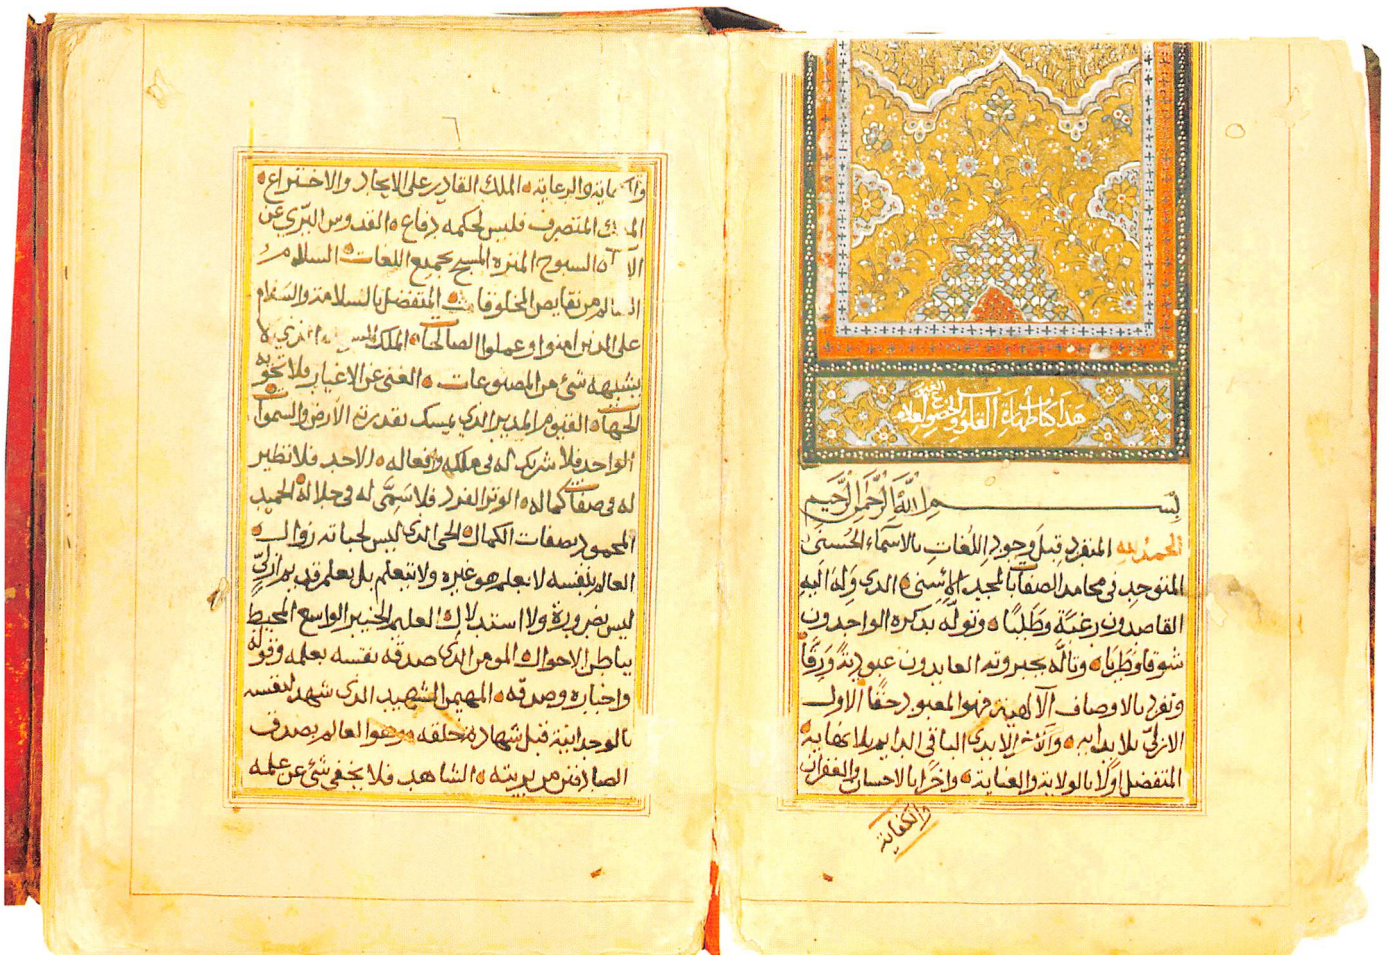 هذا كتاب طهارة القلوب والخضوع لعلام الغيوب
بسم الله الرحمن الرحيم
الحمد لله المنفرد قبل وجود اللغات بالاسماء الحسنى
المتوحد في محامد الصفات بالمجد الاسنى الذي وله اليه
القاصدون رغبة وطلبا وتوله بذكره الواجدون
شوقا وطربا وتأله بجبروته العابدون عبودية ورقا
وتفرد بالاوصاف الالهية فهو المعبود حقا الاول
الازلي بلا بداية والاخر الابدي الباقي الدايم بلا نهاية
المتفضل اولا بالولاية والعناية واخرا بالاحسان والغفران
والكفاية
والرعاية الملك القادر على الايجاد والاختراع
المتصرف فليس لحكمه دفاع القدوس البري عن
السبوح المنزه المسبح بجميع اللغات السلام
السالم من نقايص المخلوقات المتفضل بالسلامة والسلام
على الذين امنوا وعملوا الصالحات الملك الذي لا
يشبهه شئ من المصنوعات الغني عن الاغيار فلا تحويه
الجهات القيوم المدبر الذي يمسك بقدرته الارض والسموات
الواحد فلا شريك له في ملكه وافعاله الاحد فلا نظير
له في صفات كماله الوتر الفرد فلا سمى له في جلاله الحميد
المحمود بصفات الكمال الحي الذي ليس لحياته زوال
العالم بنفسه لا بعلم هو غيره ولا بتعلم بل بعلم قديم ازلي
ليس بضرورة ولا استدلال العليم الخبير الواسع المحيط
بباطن الاحوال المومن الذي صدق نفسه بعلمه وقوله
واخباره وصدقه المهيمن الشهيد الذي شهد لنفسه
بالوحدانية قبل شهادة خلقه وهو العالم بصدق
الصادقين من بريته الشاهد فلا يخفى شئ عن علمه